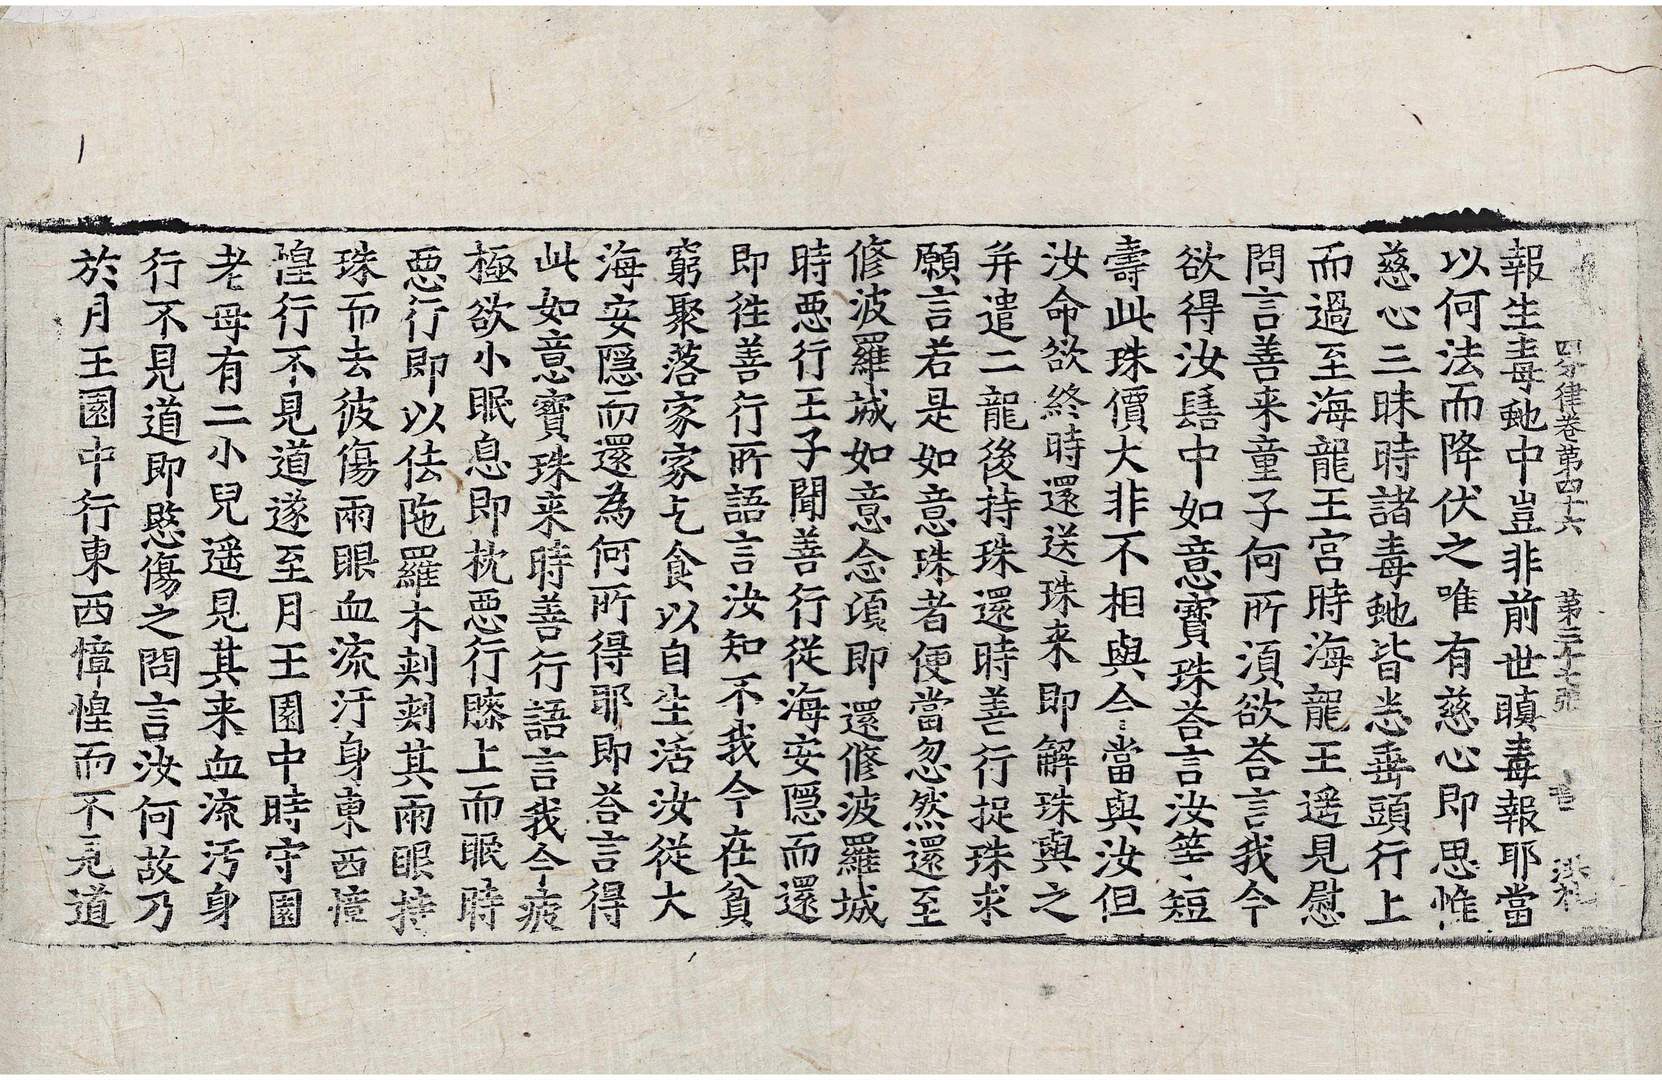 四分律卷第四十六　第二十七張
報生毒虵中豈非前世瞋毒報耶當
以何法而降伏之唯有慈心即思惟
慈心三昧時諸毒虵皆悉垂頭行上
而過至海龍王宮時海龍王遥見慰
問言善来童子何所湏欲荅言我今
欲得汝髻中如意寶珠荅言汝等短
壽此珠價大非不相與今當與汝但
汝命欲終時還送珠来即解珠與之
并遣二龍後持珠還時善行捉珠求
願言若是如意珠者便當忽然還至
修波羅城如意念湏即還修波羅城
時惡行王子聞善行從海安隱而還
即往善行所語言汝知不我今在貧
窮聚落家家乞食以自生活汝從大
海安隱而還為何所得耶即荅言得
此如意寶珠来時善行語言我今疲
極欲小眠息即枕惡行膝上而眠時
惡行即以佉陁羅木刺刺其兩眼持
珠而去彼傷兩眼血流汙身東西慞
惶行不見道遂至月王園中時守園
老母有二小兒遥見其来血流汚身
行不見道即愍傷之問言汝何故乃
於月王園中行東西慞惶而不見道